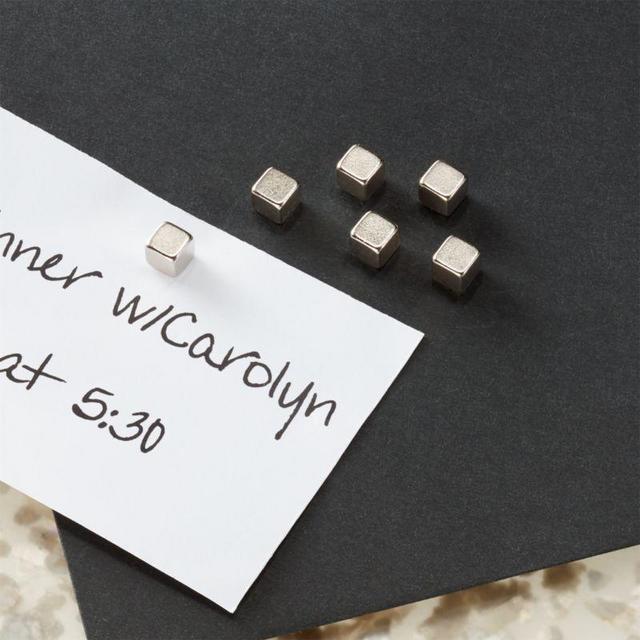 nner w/Carolyn
at 5:30